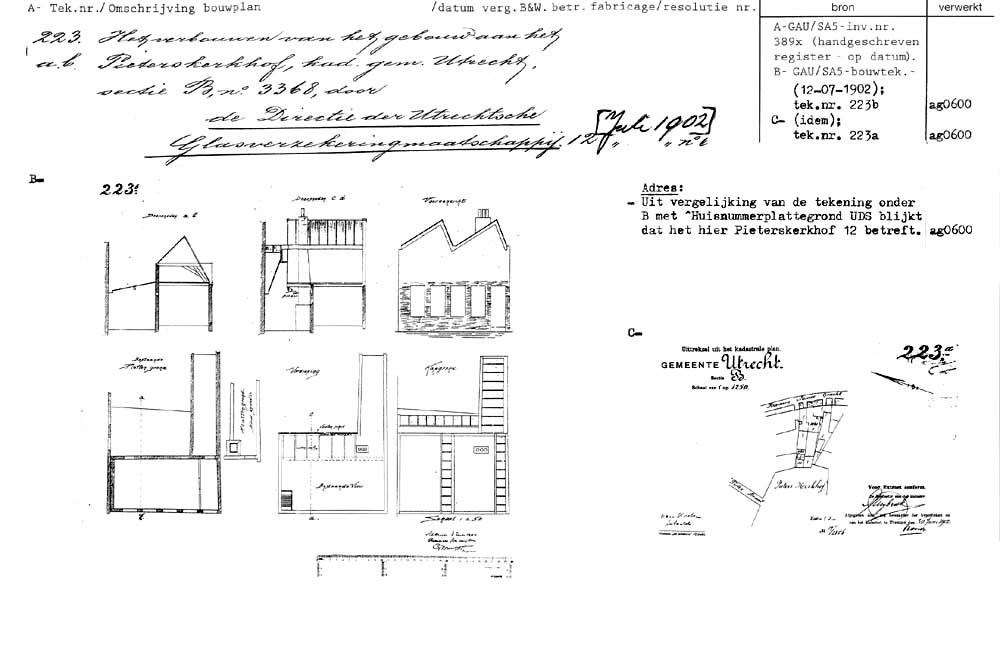 A- Tek.nr./Omschrijving bouwplan /datum verg.B&W. betr. fabricage/resolutie nr.
bron
verwerkt
223. Het verbouwen van het gebouw aan het
a.b. Pieterskerkhof, kad. gem. Utrecht,
sectie B, no 3368, door
de Directie der Utrechtsche
Glasverzekeringmaatschappij. 12 [Juli 1902]
A-GAU/SA5-inv.nr.
389x (handgeschreven
register - op datum).
B- GAU/SA5-bouwtek.-
(12-07-1902);
tek.nr. 223b ag0600
C- (idem);
tek.nr. 223a ag0600
B-
Doorsnede a b
Doorsnede c d
Voorgezicht
Adres:
- Uit vergelijking van de tekening onder
B met ^Huisnummerplattegrond UDS blijkt
dat het hier Pieterskerkhof 12 betreft. ag0600
Bestaande
Platte grond
Kapgrond
Bestaande Vloer
Schaal 1 a 50
C-
Uittreksel uit het kadastrale plan.
GEMEENTE Utrecht.
Sectie B.
Schaal van 1 op 1250.
223a
Kromme Nieuwe Gracht
Pieters Kerkhof
Voor Extract conform.